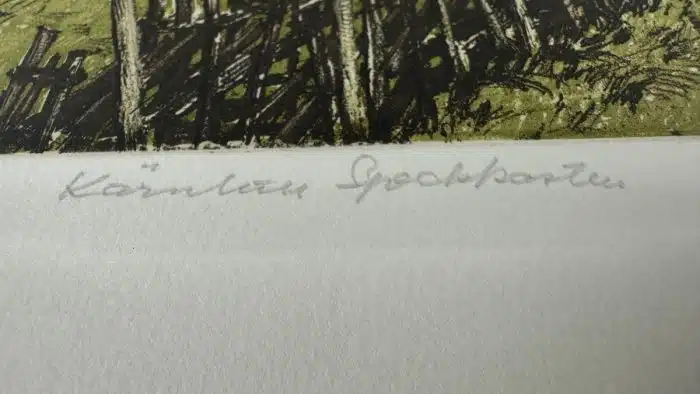 Kärnten Speckkasten